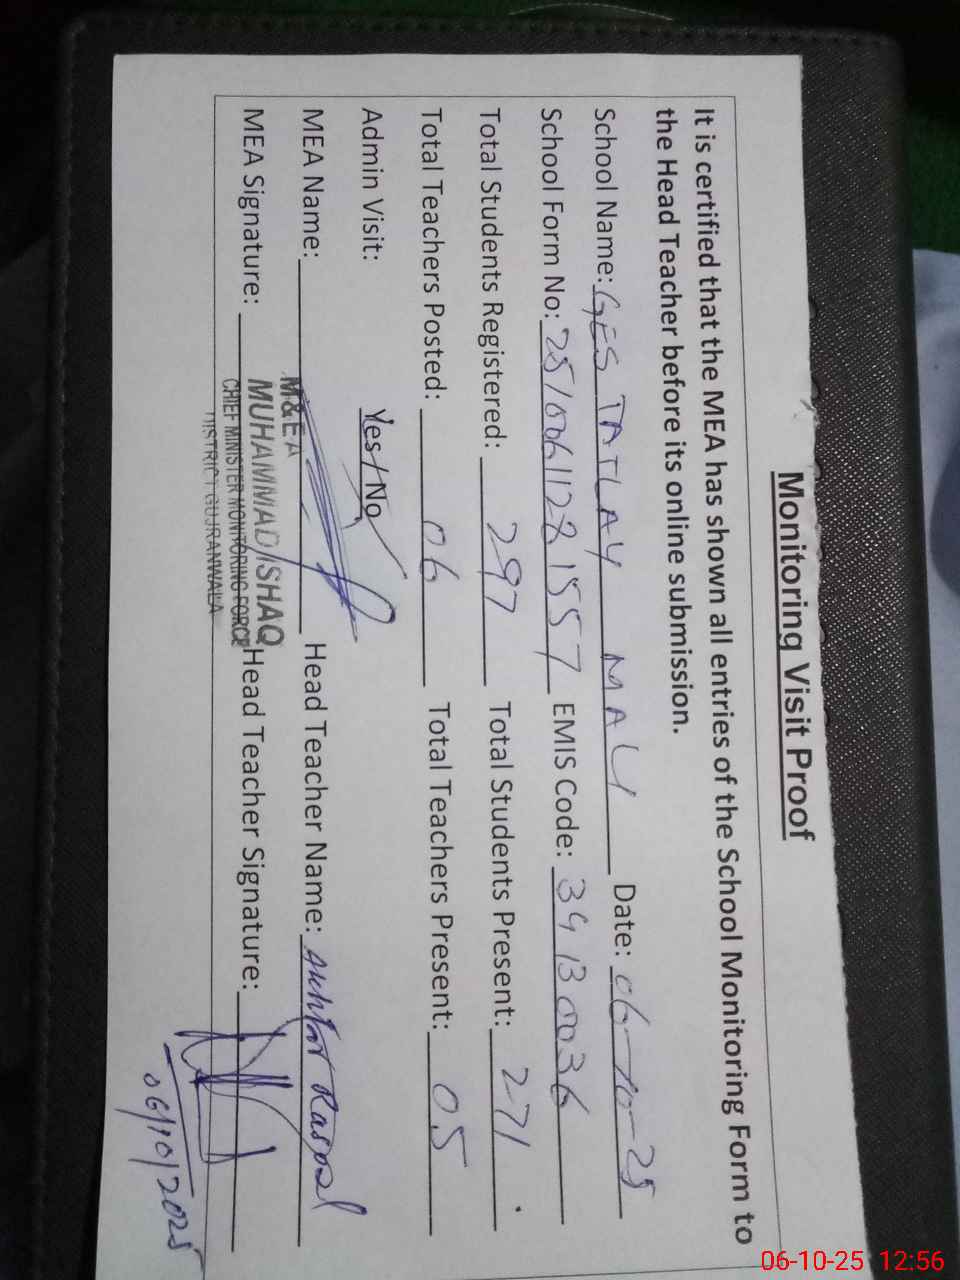 Monitoring Visit Proof
It is certified that the MEA has shown all entries of the School Monitoring Form to
the Head Teacher before its online submission.
School Name: GES TATLAY MALI Date: 06-10-25
School Form No: 25100611281557 EMIS Code: 34130036
Total Students Registered: 297 Total Students Present: 271
Total Teachers Posted: 06 Total Teachers Present: 05
Admin Visit: Yes / No
MEA Name: Head Teacher Name: Akhtar Rasool
M&EA
MEA Signature: MUHAMMAD ISHAQ Head Teacher Signature:
CHIEF MINISTER MONITORING FORCE
DISTRICT GUJRANWALA
06/10/2025
06-10-25 12:56